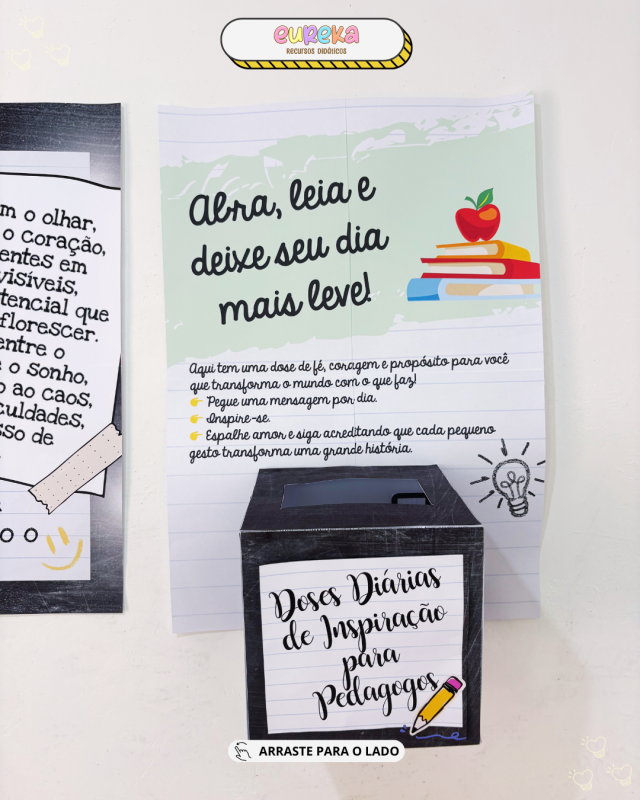 eureka
RECURSOS DIDÁTICOS
m o olhar,
o coração,
entes em
visíveis,
tencial que
florescer.
entre o
o sonho,
o ao caos,
culdades,
sso de
Abra, leia e
deixe seu dia
mais leve!
Aqui tem uma dose de fé, coragem e propósito para você
que transforma o mundo com o que faz!
👉 Pegue uma mensagem por dia.
👉 Inspire-se.
👉 Espalhe amor e siga acreditando que cada pequeno
gesto transforma uma grande história.
Doses Diárias
de Inspiração
para
Pedagogos
ARRASTE PARA O LADO